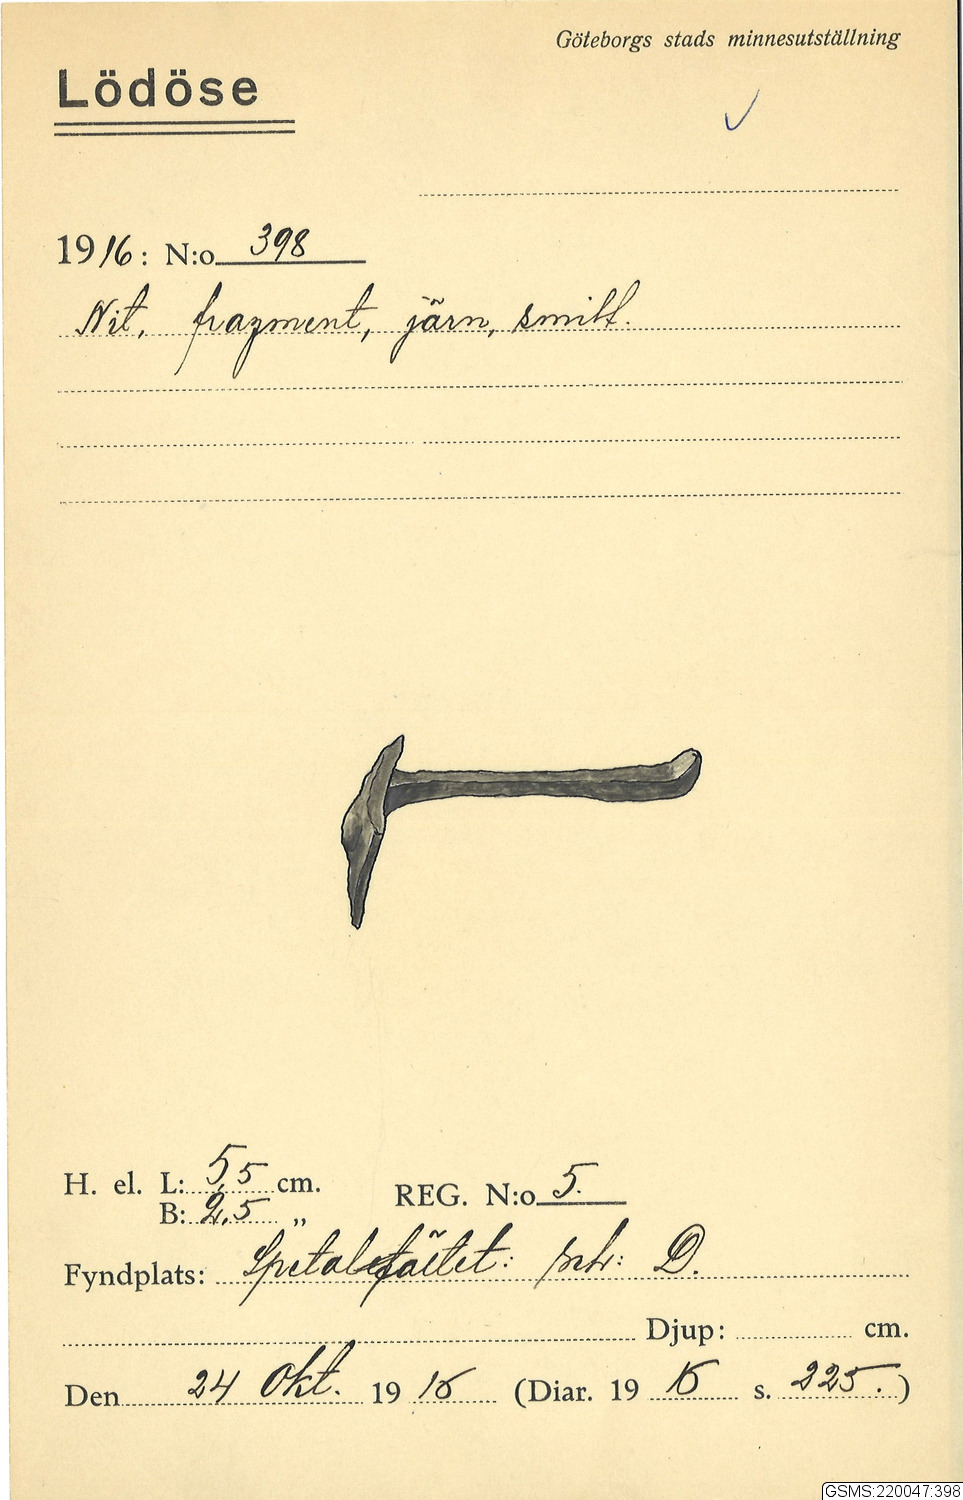 Göteborgs stads minnesutställning
Lödöse
1916: N:o 398
Nit, fragment, järn, smitt.
H. el. L: 5,5 cm. REG. N:o 5.
B: 2,5 „
Fyndplats: Spetalsfältet: D.
Djup: cm.
Den 24 Okt. 1916 (Diar. 1916 s. 225.)
GSMS:220047:398